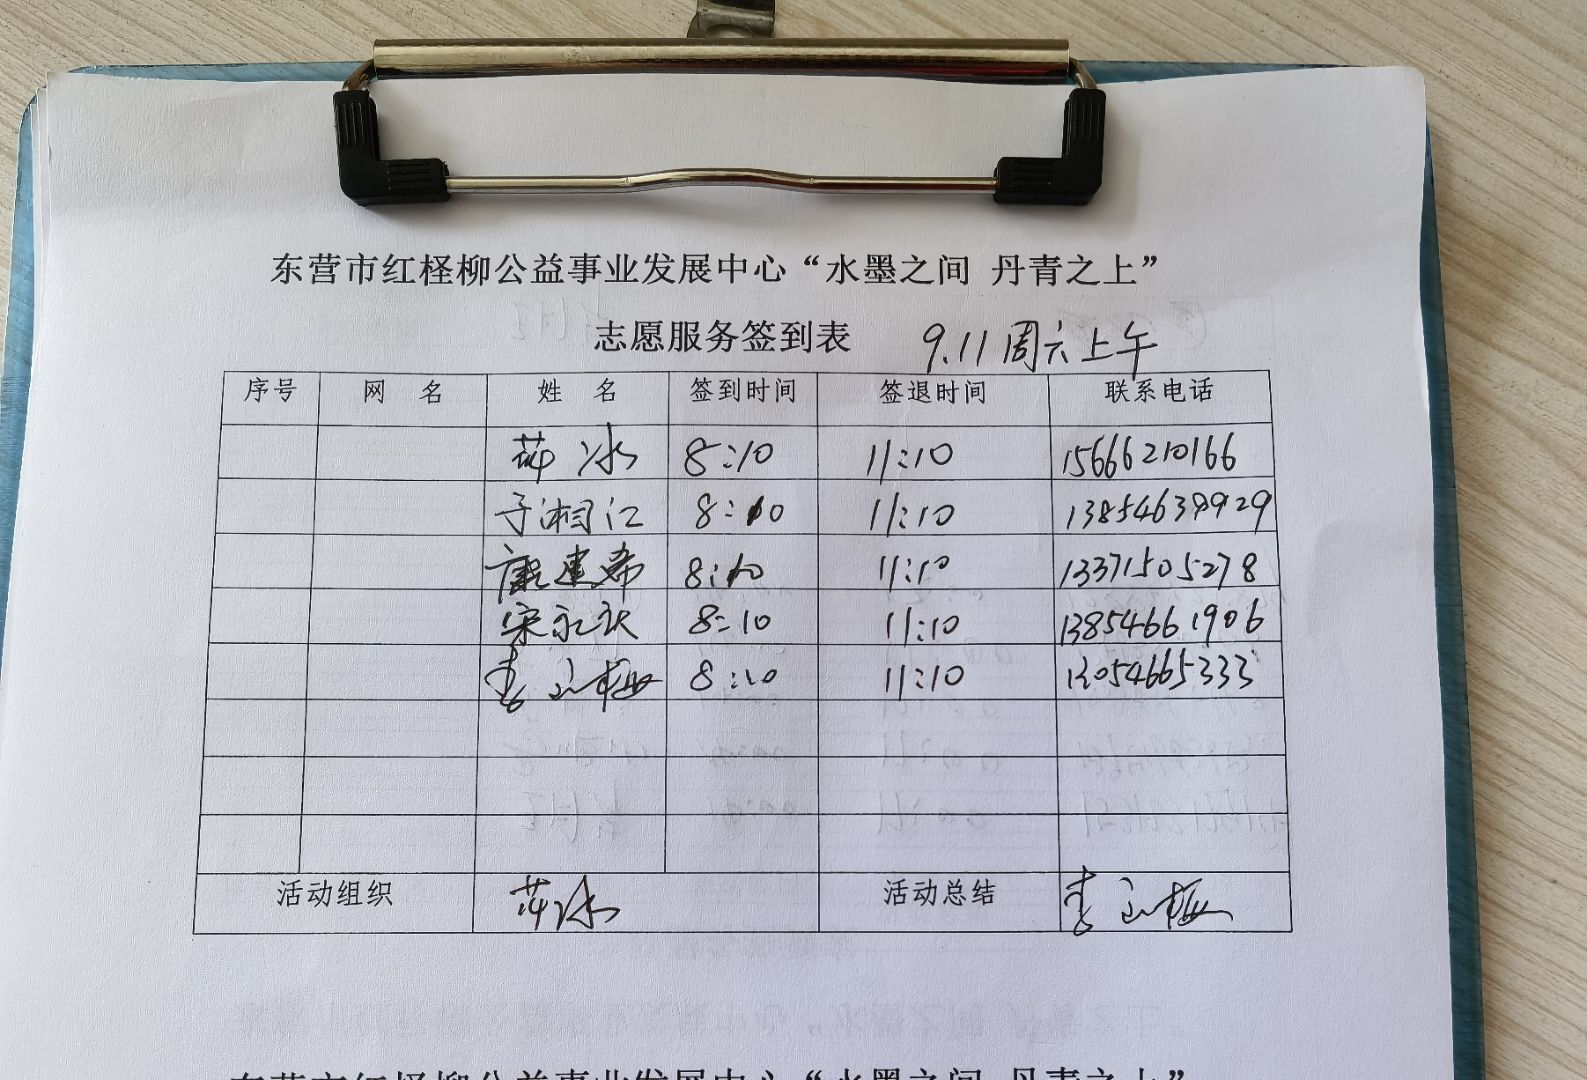 东营市红柽柳公益事业发展中心“水墨之间 丹青之上”
志愿服务签到表 9.11周六上午
序号 网 名 姓 名 签到时间 签退时间 联系电话
冰 8:10 11:10 15666210166
于湘江 8:10 11:10 13854639929
康建希 8:10 11:10 13371505278
宋永 8:10 11:10 13854661906
李 梅 8:10 11:10 13054665333
活动组织 冰 活动总结 李 梅
东营市红柽柳公益事业发展中心“水墨之间 丹青之上”